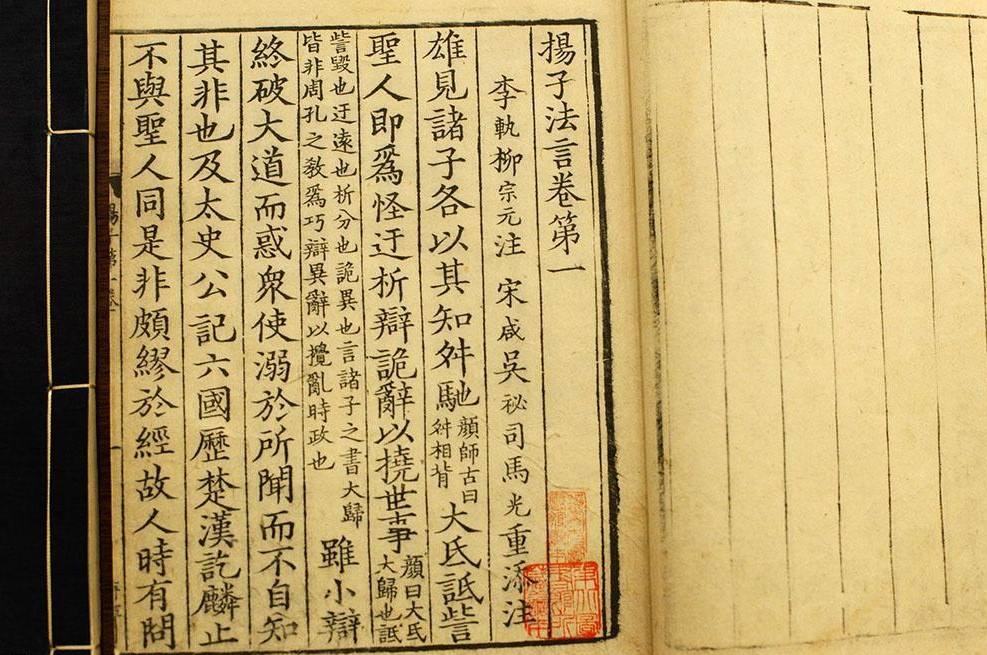 揚子法言卷第一
李軌柳宗元注 宋咸吳祕司馬光重添注
雄見諸子各以其知舛馳顔師古曰舛相背大氐詆訾
聖人即爲怪迂析辯詭辭以撓世事顔曰大氐大歸也詆
訾毀也迂遠也析分也詭異也言諸子之書大歸皆非周孔之敎爲巧辯異辭以攪亂時政也雖小辯
終破大道而惑衆使溺於所聞而不自知
其非也及太史公記六國歷楚漢訖麟止
不與聖人同是非頗繆於經故人時有問